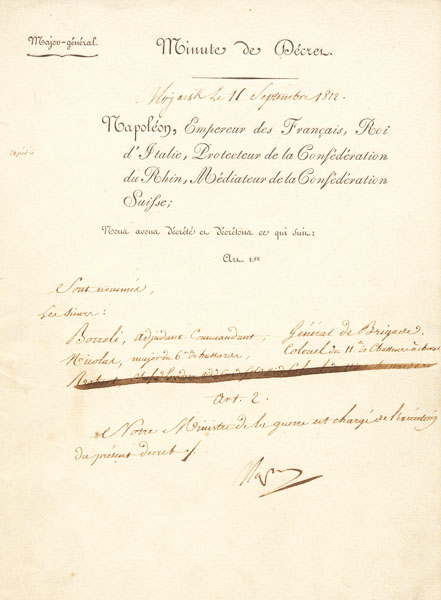 Major-général.
Minute de Décret.
Mojaisk Le 11 Septembre 1812.
Napoléon, Empereur des Français, Roi
d'Italie, Protecteur de la Confédération
du Rhin, Médiateur de la Confédération
Suisse;
Nous avons décrété et décrétons ce qui suit:
Art. 1.er
Sont nommés,
Les Sieurs:
Borreli, adjudant Commandant, Général de Brigade.
Nicolas, major du 6.e de hussards, Colonel du 11.e de Chasseurs à cheval
Art. 2.
Notre Ministre de la guerre est chargé de l'exécution
du présent décret.